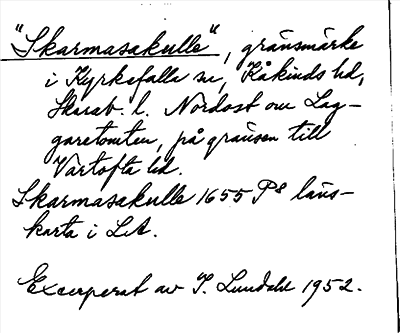 "Skarmasakulle", gränsmärke
i Kyrkefalla sn, Kåkinds hd,
Skarab. l. Nordost om Lag-
garetomten, på gränsen till
Vartofta hd.
Skarmasakulle 1655 P8 läns-
karta i LA.
Excerperat av I. Lundahl 1952.